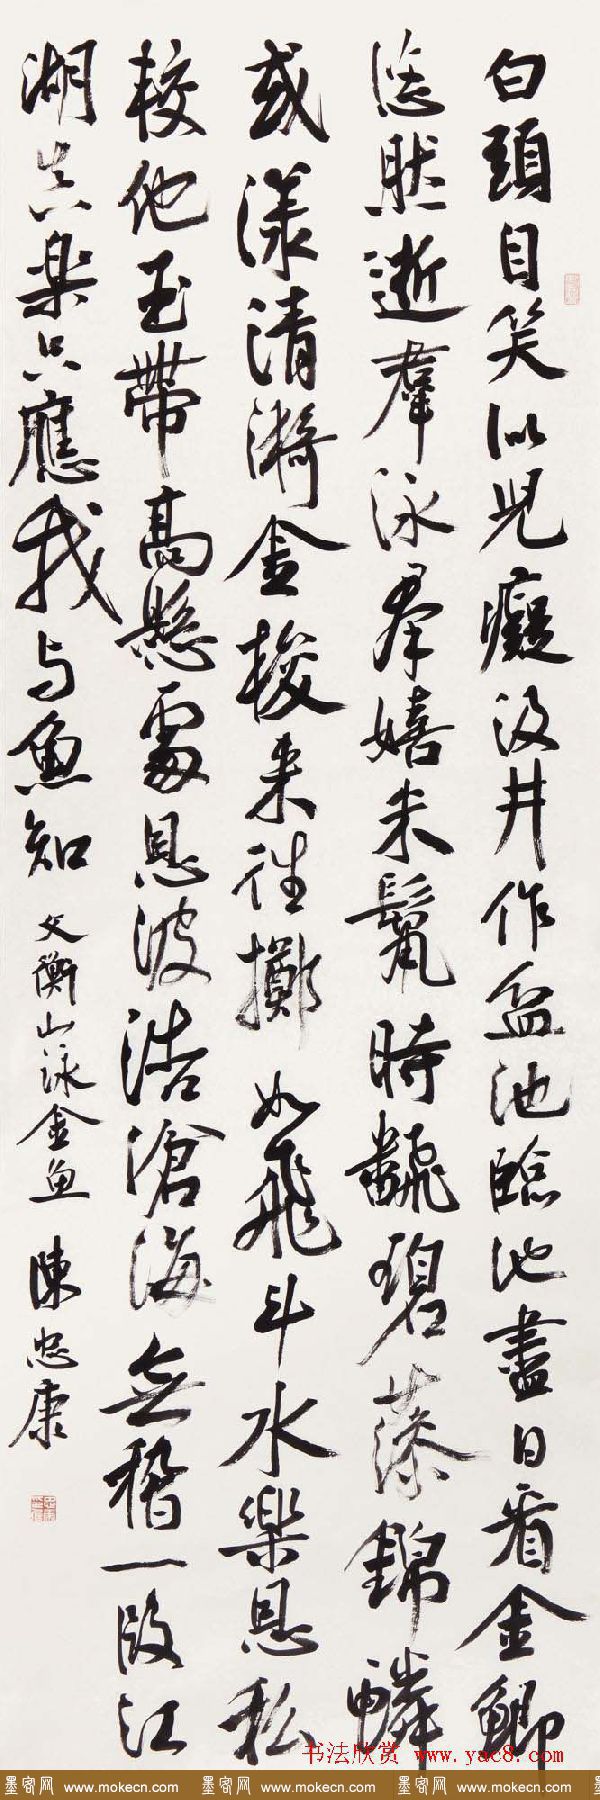 白頭自笑似兒癡汲井作盆池臨池盡日看金鯽
悠然逝羣泳羣嬉朱鬣時翻碧藻錦鱗
或漾清漪金梭来往擲如飛斗水樂恩私
較他玉帶高懸處恩波浩滄海無稽一段江
湖真樂只應我与魚知
文衡山詠金魚
陳忠康
书法欣赏 www.yac8.com
墨客网 www.mokecn.com 墨客网 www.mokecn.com 墨客网 www.mokecn.com